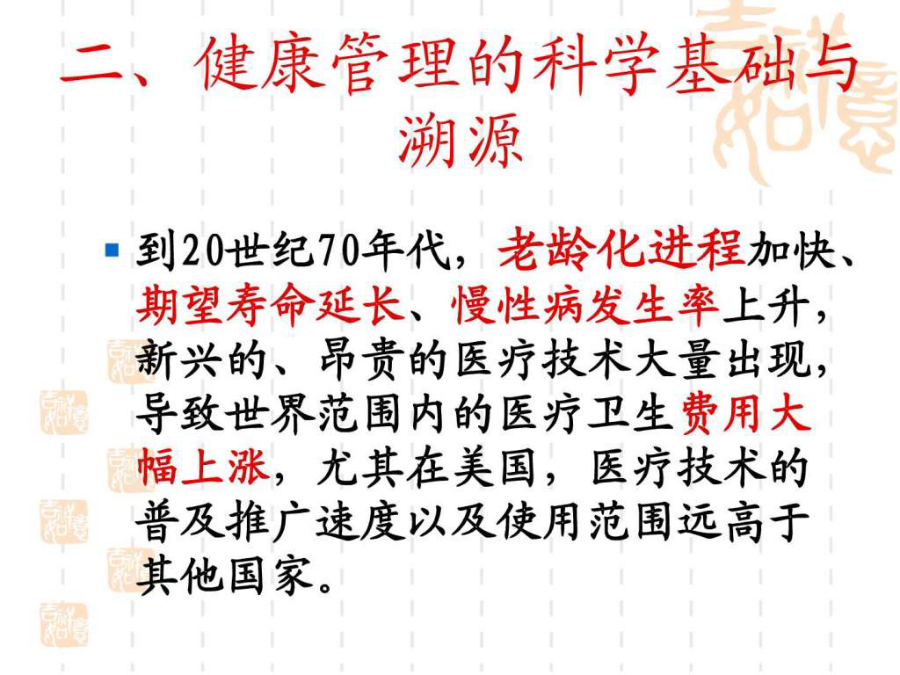 二、健康管理的科学基础与
溯源
到20世纪70年代，老龄化进程加快、
期望寿命延长、慢性病发生率上升，
新兴的、昂贵的医疗技术大量出现，
导致世界范围内的医疗卫生费用大
幅上涨，尤其在美国，医疗技术的
普及推广速度以及使用范围远高于
其他国家。
吉祥
如意